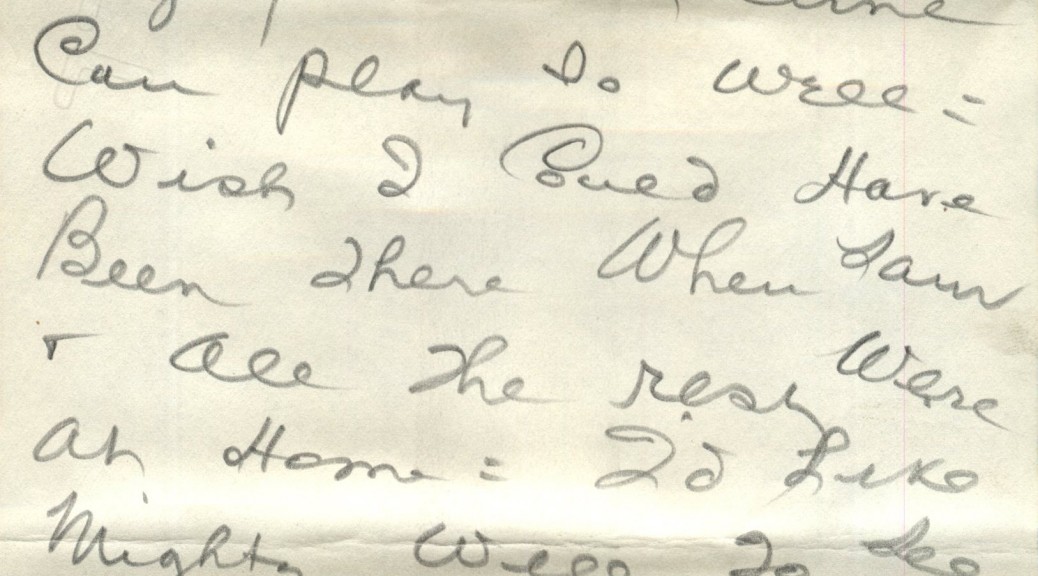 Can play so well =
Wish I Could Have
Been There When
+ all The rest Were
at Home = I'd Like
Mighty Well To See